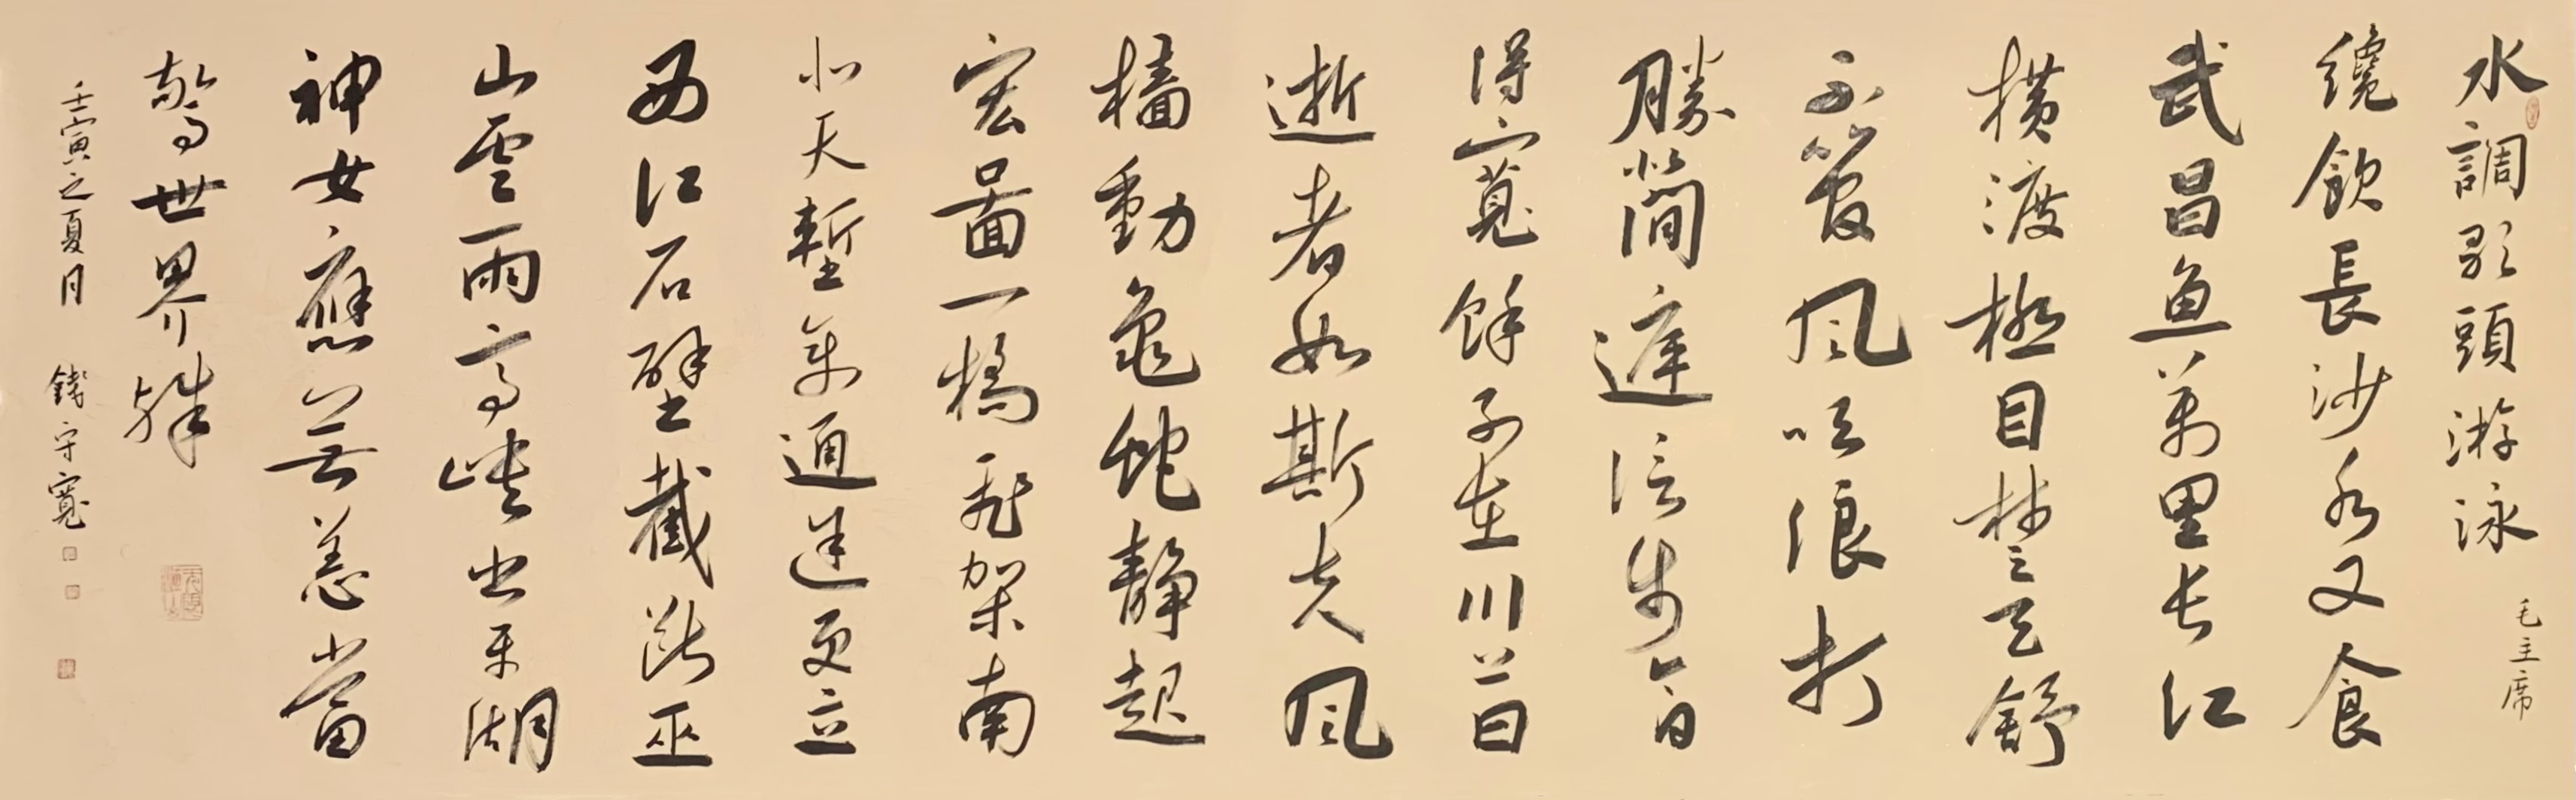 水調歌頭 游泳 毛主席
纔飲長沙水又食
武昌魚萬里長江
橫渡極目楚天舒
不管風吹浪打
勝似閒庭信步今日
得寬餘子在川上曰
逝者如斯夫風
檣動龜蛇靜起
宏圖一橋飛架南
北天塹變通途更立
西江石壁截斷巫
山雲雨高峽出平湖
神女應無恙當
驚世界殊
壬寅之夏月 錢守寬